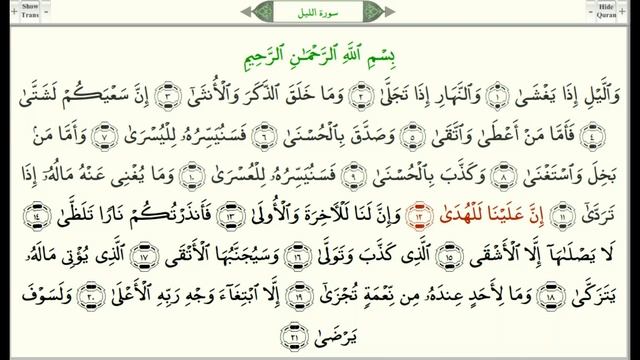 Show Trans
سورة الليل
Hide Quran
بِسْمِ ٱللَّهِ ٱلرَّحْمَـٰنِ ٱلرَّحِيمِ
وَٱلَّيْلِ إِذَا يَغْشَىٰ ١ وَٱلنَّهَارِ إِذَا تَجَلَّىٰ ٢ وَمَا خَلَقَ ٱلذَّكَرَ وَٱلْأُنثَىٰٓ ٣ إِنَّ سَعْيَكُمْ لَشَتَّىٰ
٤ فَأَمَّا مَنْ أَعْطَىٰ وَٱتَّقَىٰ ٥ وَصَدَّقَ بِٱلْحُسْنَىٰ ٦ فَسَنُيَسِّرُهُۥ لِلْيُسْرَىٰ ٧ وَأَمَّا مَنۢ
بَخِلَ وَٱسْتَغْنَىٰ ٨ وَكَذَّبَ بِٱلْحُسْنَىٰ ٩ فَسَنُيَسِّرُهُۥ لِلْعُسْرَىٰ ١٠ وَمَا يُغْنِى عَنْهُ مَالُهُۥٓ إِذَا
تَرَدَّىٰٓ ١١ إِنَّ عَلَيْنَا لَلْهُدَىٰ ١٢ وَإِنَّ لَنَا لَلْـَٔاخِرَةَ وَٱلْأُولَىٰ ١٣ فَأَنذَرْتُكُمْ نَارًا تَلَظَّىٰ ١٤
لَا يَصْلَىٰهَآ إِلَّا ٱلْأَشْقَى ١٥ ٱلَّذِى كَذَّبَ وَتَوَلَّىٰ ١٦ وَسَيُجَنَّبُهَا ٱلْأَتْقَى ١٧ ٱلَّذِى يُؤْتِى مَالَهُۥ
يَتَزَكَّىٰ ١٨ وَمَا لِأَحَدٍ عِندَهُۥ مِن نِّعْمَةٍ تُجْزَىٰٓ ١٩ إِلَّا ٱبْتِغَآءَ وَجْهِ رَبِّهِ ٱلْأَعْلَىٰ ٢٠ وَلَسَوْفَ
يَرْضَىٰ ٢١